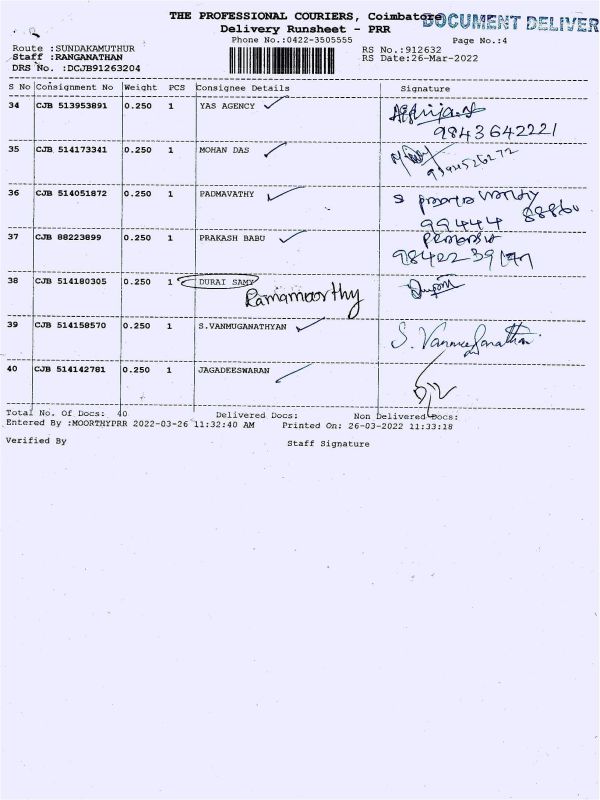 THE PROFESSIONAL COURIERS, Coimbatore
DOCUMENT DELIVER
Delivery Runsheet - PRR
Phone No.:0422-3505555
Page No.:4
Route :SUNDAKAMUTHUR
RS No.:912632
Staff :RANGANATHAN
RS Date:26-Mar-2022
DRS No. :DCJB91263204
S No Consignment No Weight PCS Consignee Details Signature
34 CJB 513953891 0.250 1 YAS AGENCY
9843642221
35 CJB 514173341 0.250 1 MOHAN DAS
36 CJB 514051872 0.250 1 PADMAVATHY
99444 88860
37 CJB 88223899 0.250 1 PRAKASH BABU
38 CJB 514180305 0.250 1 DURAI SAMY
Ramamoorthy
39 CJB 514158570 0.250 1 S.VANMUGANATHYAN
S. Vanmuganathan
40 CJB 514142781 0.250 1 JAGADEESWARAN
Total No. Of Docs: 40 Delivered Docs: Non Delivered Docs:
Entered By :MOORTHYPRR 2022-03-26 11:32:40 AM Printed On: 26-03-2022 11:33:18
Verified By Staff Signature